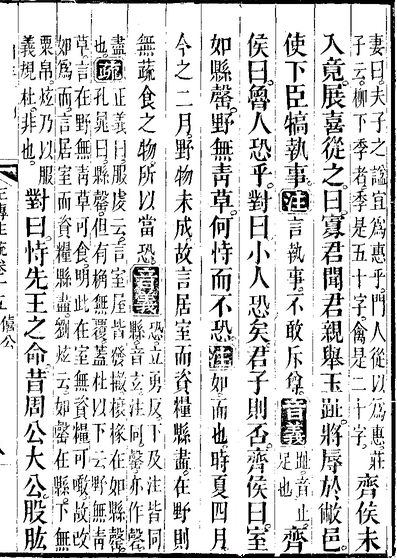 妻曰夫子之諡宜爲惠乎門人從以爲惠莊
子云柳下季者季是五十字禽是二十字
齊侯未
入竟展喜從之曰寡君聞君親舉玉趾將辱於敝邑
使下臣犒執事注言執事不敢斥尊音義
趾音止
足也
齊
侯曰魯人恐乎對曰小人恐矣君子則否齊侯曰室
如縣罄野無靑草何恃而不恐注如而也時夏四月
今之二月野物未成故言居室而資糧縣盡在野則
無蔬食之物所以當恐音義
恐立勇反下及注皆同
縣音玄注同罄亦作磬
盡
也
疏
正義曰服虔云言室屋皆發撤榱椽在如縣罄
孔晁曰縣罄但有桷無覆蓋杜以下云野無靑
草言在野無靑草可食明此在室無資糧可噉故改
如爲而言居室而資糧縣盡劉炫云如罄在縣下無
粟帛炫乃以服
義規杜非也
對曰恃先王之命昔周公大公股肱
僖公